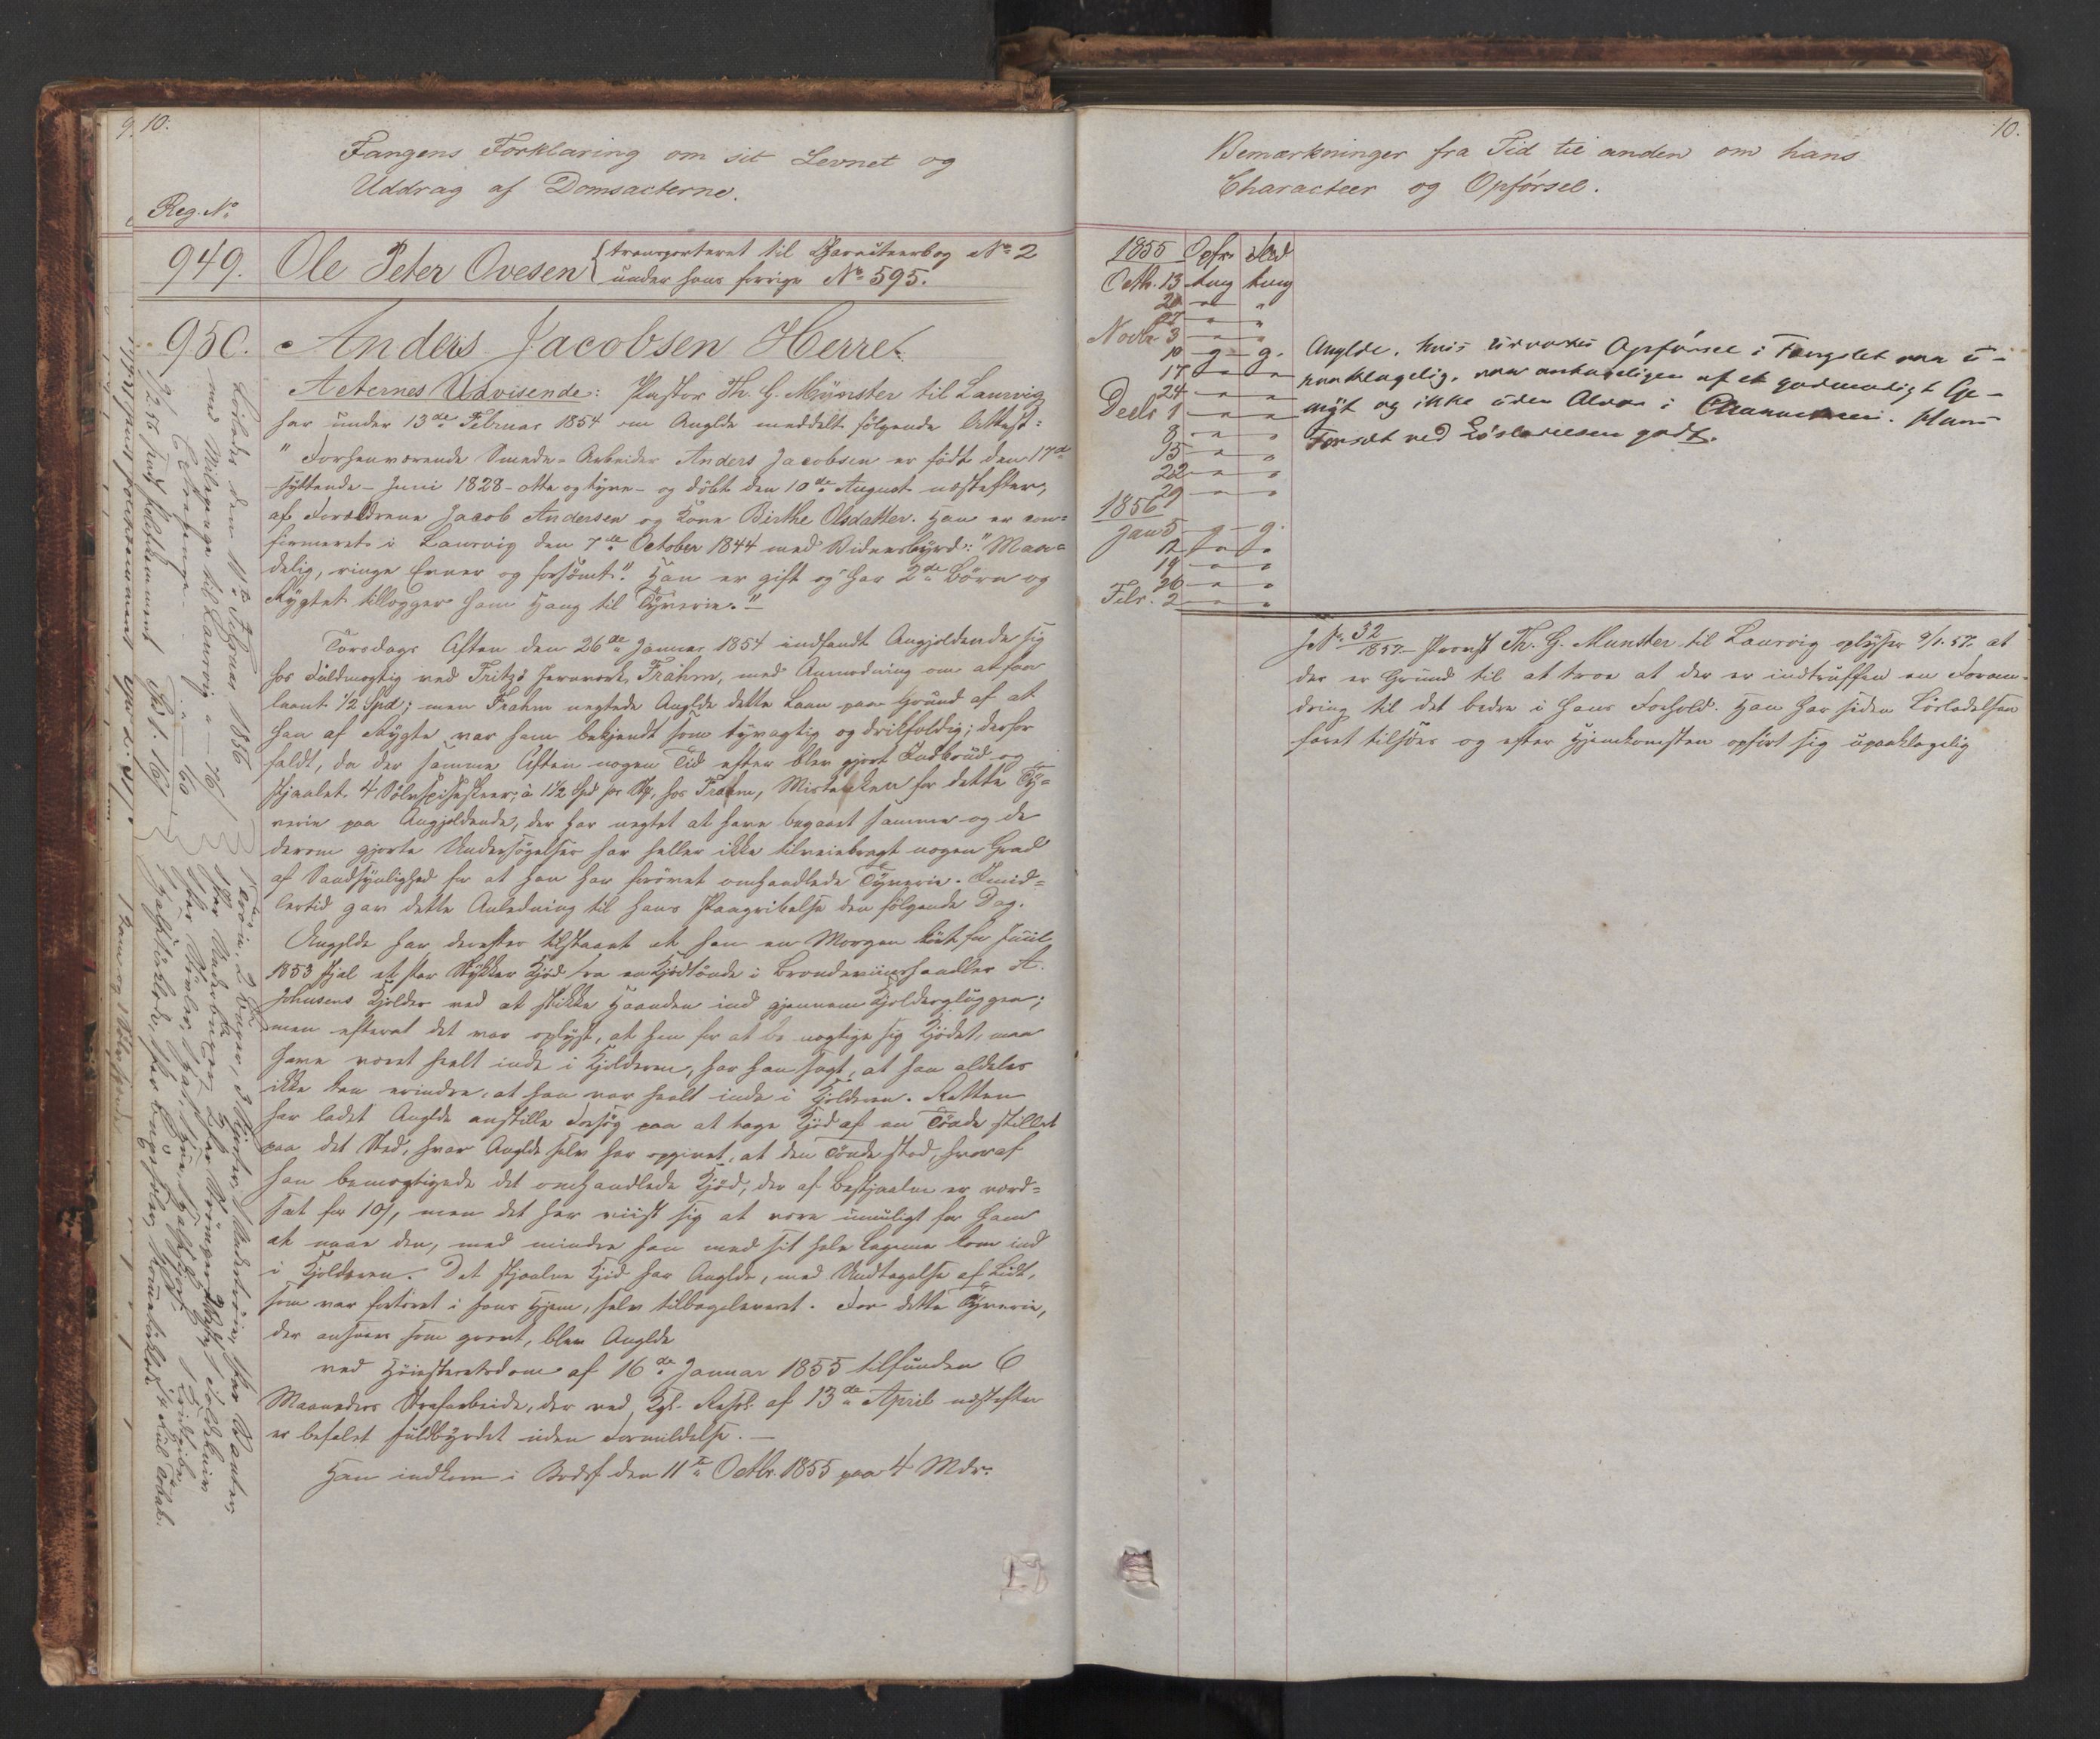 9. 10.
Fangens Forklaring om sit Levnet og
Uddrag af Domsacterne.
Reg. No
949. Ole Peter Ovesen { transporteret til Characteerbog No 2
under hans forrige No 595.
950. Anders Jacobsen Herre.
Acternes Udvisende: Pastor Th. G. Münster til Laurvig
har under 13de Februar 1854 om Anglde meddelt følgende Attest:
" Forhenværende Smede-Arbeider Anders Jacobsen er født den 17de
- syttende - Juni 1828 - otte og tyve - og døbt den 10de August næstefter,
af Forældrene Jacob Andersen og Kone Birthe Olsdatter. Han er con=
firmeret i Laurvig den 7de October 1844 med Vidnesbyrd: "Maa=
delig, ringe Evner og forsømt." Han er gift og har 2de Børn og
Rygtet tillægger ham Hang til Tyverie."
Torsdags Aften den 26de Januar 1854 indfandt Angjeldende sig
hos Fuldmægtig ved Fritzø Jernværk, Frahm, med Anmodning om at faa
laant 1/2 Spd; men Frahm negtede Anglde dette Laan paa Grund af at
han af Rygte var ham bekjendt som tyvagtig og drikfældig; derfor
faldt, da der samme Aften nogen Tid efter blev gjort Indbrud og
stjaalet 4 Sølvspiseskeer, à 1 1/2 Spd pr Stk, hos Frahm, Mistanken for dette Ty=
verie paa Angjeldende, der har negtet at have begaaet samme og de
derom gjorte Undersøgelser har heller ikke tilveiebragt nogen Grad
af Sandsynlighed for at han har forøvet omhandlede Tyverie. Imid=
lertid gav dette Anledning til hans Paagribelse den følgende Dag.
Anglde har derefter tilstaaet at han en Morgen kort før Juul
1853 stjal et Par Stykker Kjød fra en Kjødtønde i Brændeviinshandler A.
Johnsens Kjelder ved at stikke Haanden ind gjennem Kjelderglüggen;
men efterat det var oplyst, at han for at be mægtige sig Kjødet, maa
have været heelt inde i Kjelderen, har han sagt, at han aldeles
ikke kan erindre, at han var heelt inde i Kjelderen. Retten
har ladet Anglde anstille Forsøg paa at tage Kjød af en Tønde stillet
paa det Sted, hvor Anglde selv har opgivet, at den Tønde stod, hvoraf
han bemægtigede det omhandlede Kjød, der af Bestjaalne er værd=
sat for 10s, men det har viist sig at være umuligt for ham
at naae den, med mindre han med sit hele Legeme kom ind
i Kjelderen. Det stjaalne Kjød har Anglde, med Undtagelse af Lidt,
som var fortæret i hans Hjem, selv tilbageleveret. For dette Tyverie,
der ansees som grovt, blev Anglde
ved Høiesteretsdom af 16de Januar 1855 tilfunden 6
Maaneders Strafarbeide, der ved Kgl. Resol. af 13de April næstefter
er befalet fuldbyrdet uden Formildelse. —
Han indkom i Bodsf. den 11te Octbr. 1855 paa 4 Mdr.
Løsladt den 11te Februar 1856
med Miilepenge til Laurvig
1 Trøie, 2 Buxer, 3 Skjorter, Undertrøie, Par Vanter
10.
Bemærkninger fra Tid til anden om hans
Characteer og Opførsel.
1855 Opfr Flid
Octbr. 13 Aug Aug
20 " "
27 " "
Novbr 3 " "
10 g. g.
17 " "
24 " "
Decbr 1 " "
8 " "
15 " "
22 " "
29 " "
1856
Jan 5 g g.
12 " "
19 " "
26 " "
Febr. 2 " "
Anglde, hvis udvortes Opførsel i Fængslet var u-
paaklagelig, var antageligen af et godmodigt Ge-
myt og ikke uden Alvor i Characteren. Hans
Forsæt ved Løsladelsen godt.
J. No 32/1857 - Provst Th. G. Munster til Laurvig oplyser 9/1. 57. at
der er Grund til at troe at der er indtruffen en Foran-
dring til det bedre i hans Forhold. Han har siden Løsladelsen
faret tilsøes og efter Hjemkomsten opført sig upaaklagelig